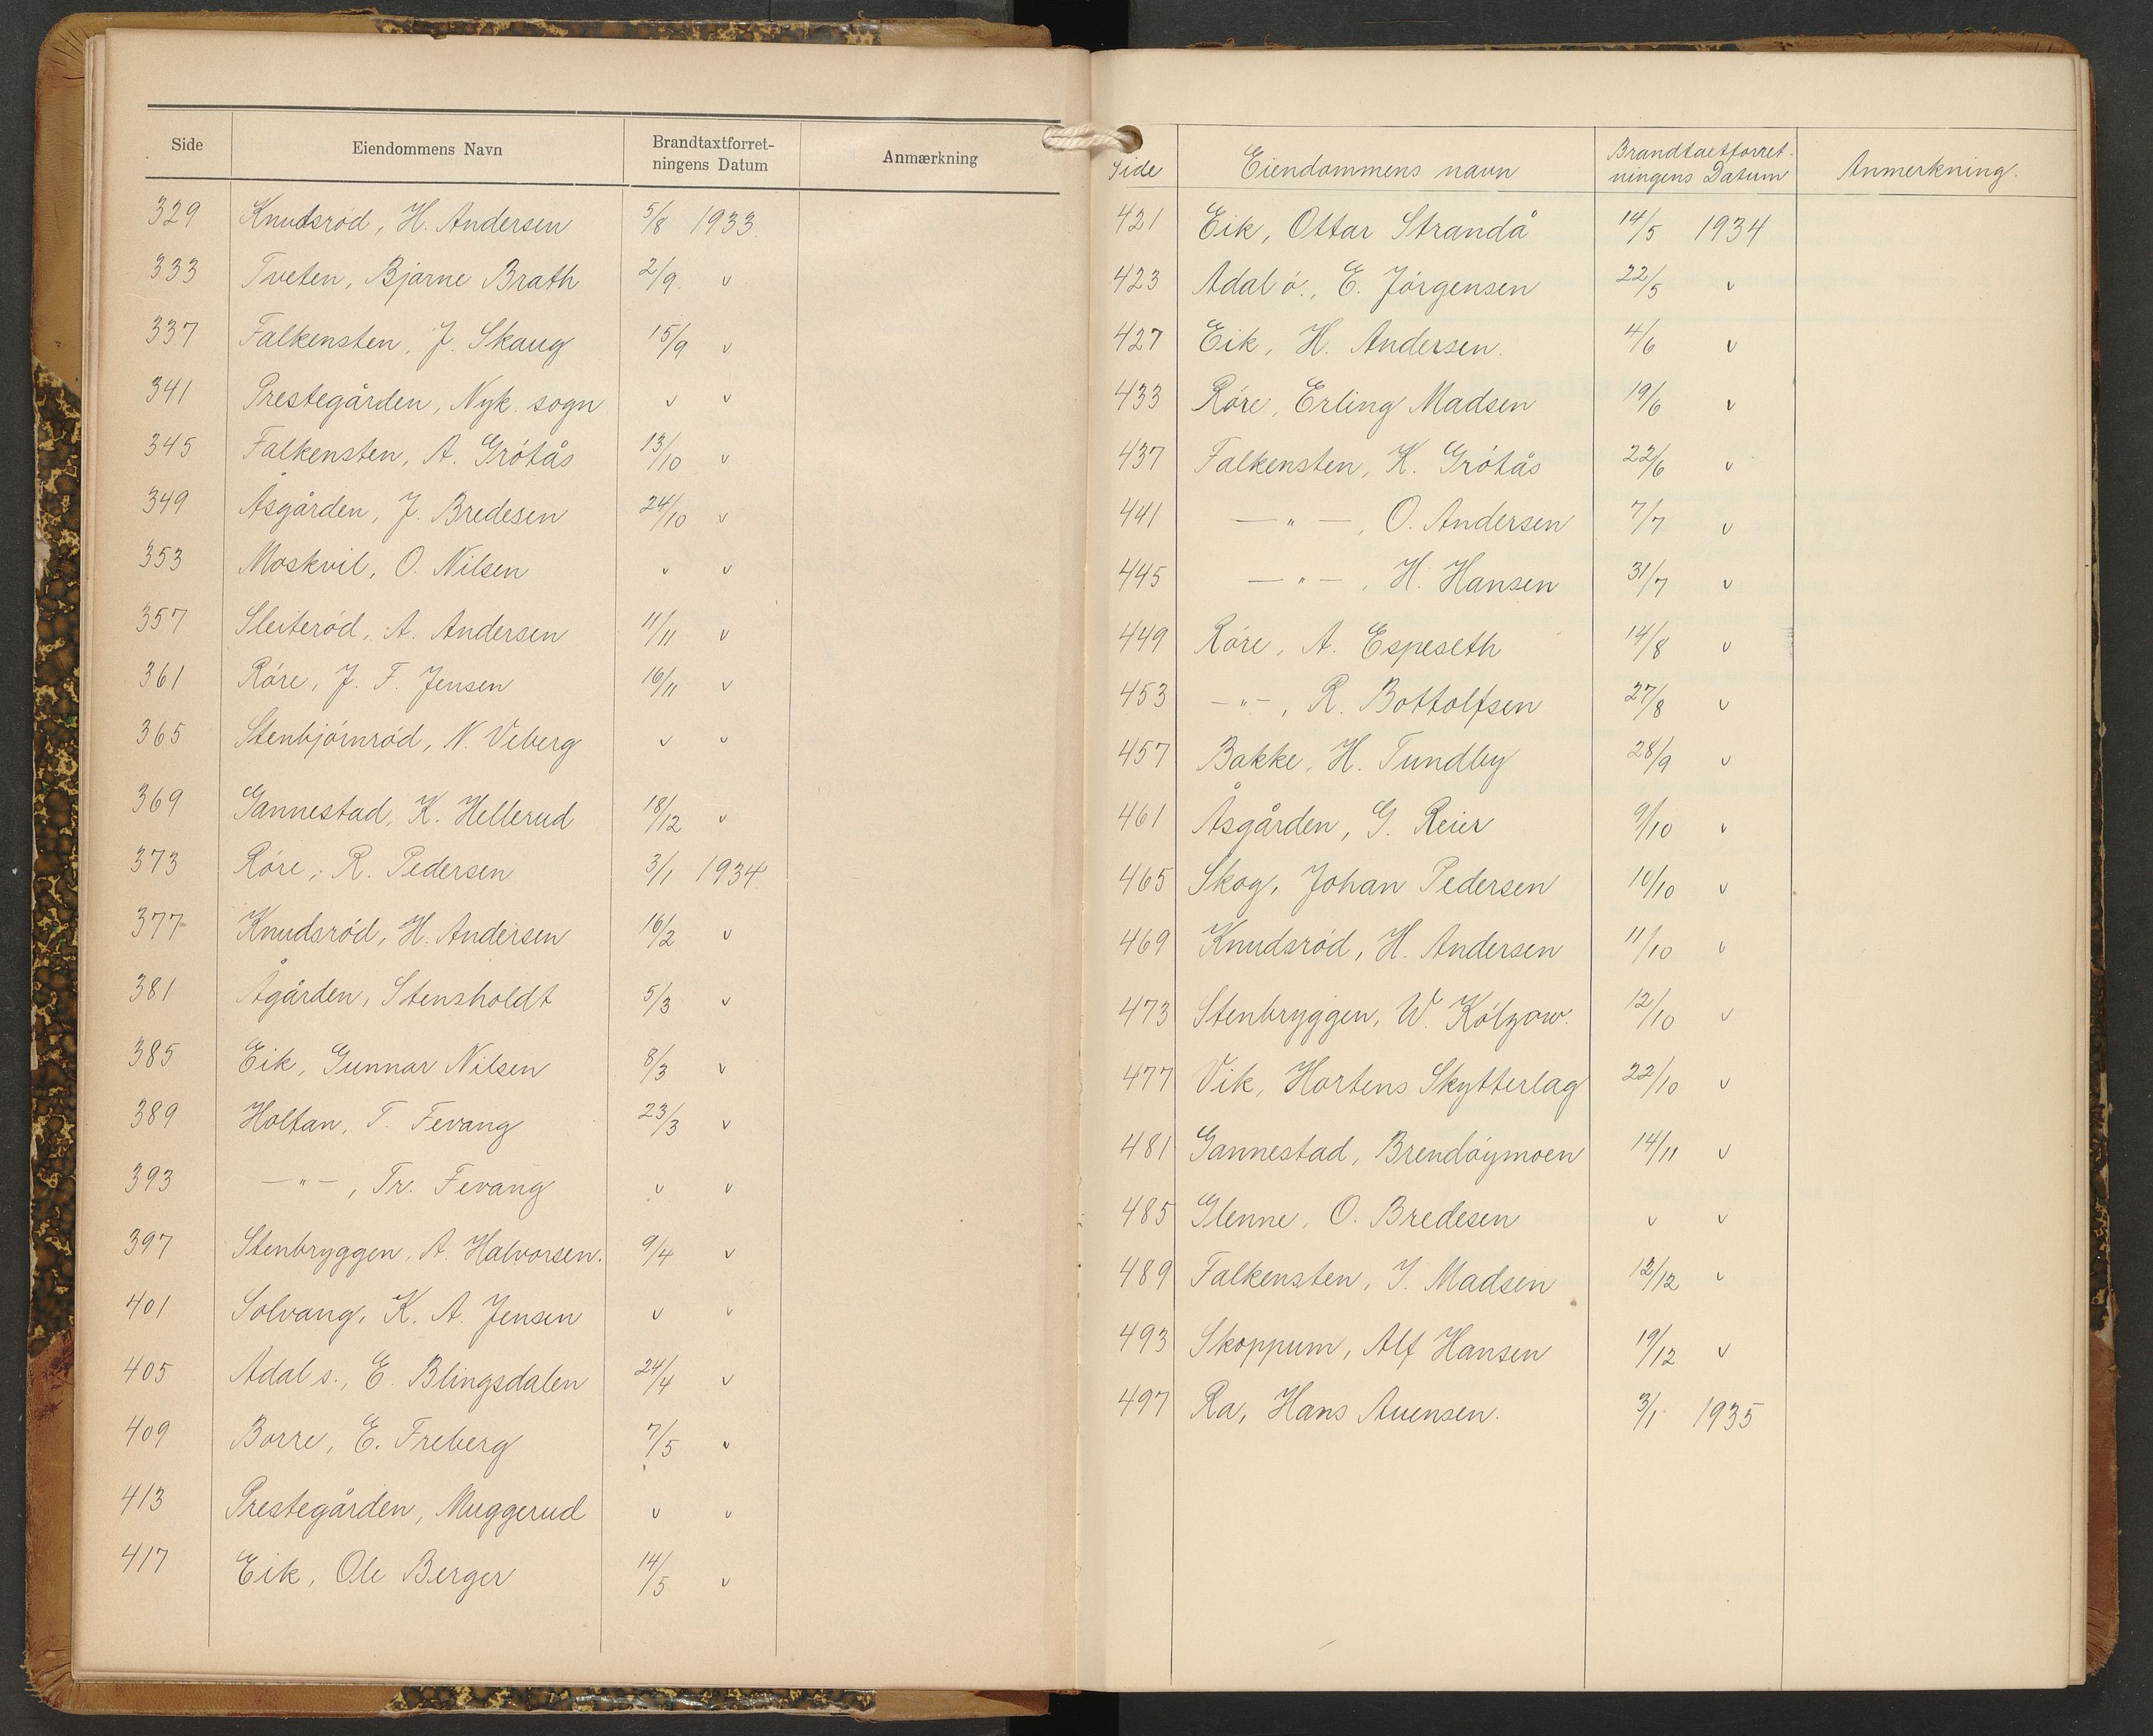 Side Eiendommens Navn Brandtaxtforret-
ningens Datum Anmærkning
329 Knudsrød, H. Andersen 5/8 1933.
333 Tveten, Bjarne Brath 2/9. "
337 Falkensten, J. Skaug 15/9 "
341 Prestegården, Nyk. sogn " "
345 Falkensten, A. Grøtås 13/10 "
349 Åsgården, J. Bredesen 24/10 "
353 Moskvil, O. Nilsen " "
357 Sleiterød, A. Andersen 11/11 "
361 Røre, J. F. Jensen 16/11 "
365 Stenbjørnrød, N. Veberg " "
369 Gannestad, K. Hellerud 18/12 "
373 Røre, R. Pedersen 3/1 1934.
377 Knudsrød, H. Andersen 16/2 "
381 Ågården, Stensholdt 5/3 "
385 Eik, Gunnar Nilsen 8/3 "
389 Holtan, T. Fevang 23/3 "
393 — " — , Tr. Fevang " "
397 Stenbryggen, A. Halvorsen. 9/4 "
401 Solvang, K. A. Jensen " "
405 Adal s., E. Blingsdalen 24/4 "
409 Borre, E. Freberg 7/5 "
413 Prestegården, Muggerud " "
417 Eik, Ole Berger 14/5 "
Side Eiendommens navn Brandtaxtforret-
ningens Datum Anmerkning.
421 Eik, Ottar Strandå 14/5 1934
423 Adal ø., E. Jørgensen 22/5 "
427 Eik, H. Andersen. 4/6 "
433 Røre, Erling Madsen 19/6 "
437 Falkensten, K. Grøtås 22/6 "
441 — " — , O. Andersen 7/7 "
445 — " — , H. Hansen 31/7 "
449 Røre, A. Espeseth 14/8 "
453 — " — , R. Bottolfsen 27/8 "
457 Bakke, H. Tundby 28/9 "
461 Åsgården, G. Reier 9/10 "
465 Skog, Johan Pedersen 10/10 "
469 Knudsrød, H. Andersen 11/10 "
473 Stenbryggen, W. Kølzow. 12/10 "
477 Vik, Hortens Skytterlag 22/10 "
481 Gannestad, Brendøymoen 14/11 "
485 Glenne, O. Bredesen " "
489 Falkensten, J. Madsen 12/12 "
493 Skoppum, Alf Hansen 19/12 "
497 Ra, Hans Auensen. 3/1 1935